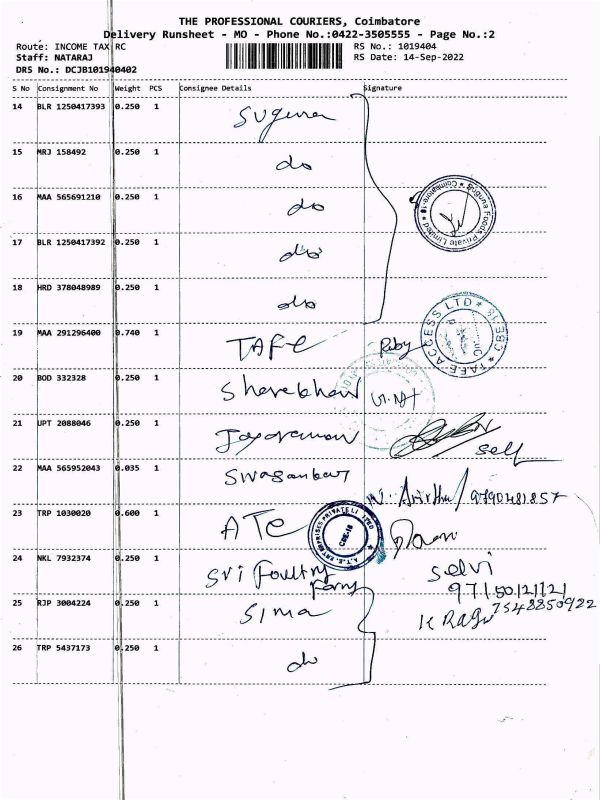 THE PROFESSIONAL COURIERS, Coimbatore
Delivery Runsheet - MO - Phone No.:0422-3505555 - Page No.:2
Route: INCOME TAX RC
RS No.: 1019404
Staff: NATARAJ
RS Date: 14-Sep-2022
DRS No.: DCJB101940402
S No Consignment No Weight PCS Consignee Details Signature
14 BLR 1250417393 0.250 1 Suguna
15 MRJ 158492 0.250 1 do
16 MAA 565691210 0.250 1 do
Suguna Foods Private Limited * Coimbatore-18 *
17 BLR 1250417392 0.250 1 do
18 HRD 378048989 0.250 1 do
19 MAA 291296400 0.740 1 TAFE Ruby
* TAFE ACCESS LTD * CBE-18
20 BOD 332328 0.250 1
21 UPT 2088046 0.250 1 Jayaraman self
22 MAA 565952043 0.035 1 9790481857
23 TRP 1030020 0.600 1 ATE
A.T.E. ENTERPRISES PRIVATE LIMITED CBE-18
24 NKL 7932374 0.250 1 Sri Poultry Farms Selvi
9715012121
25 RJP 3004224 0.250 1 Sima K Ragu 7548850922
26 TRP 5437173 0.250 1 do